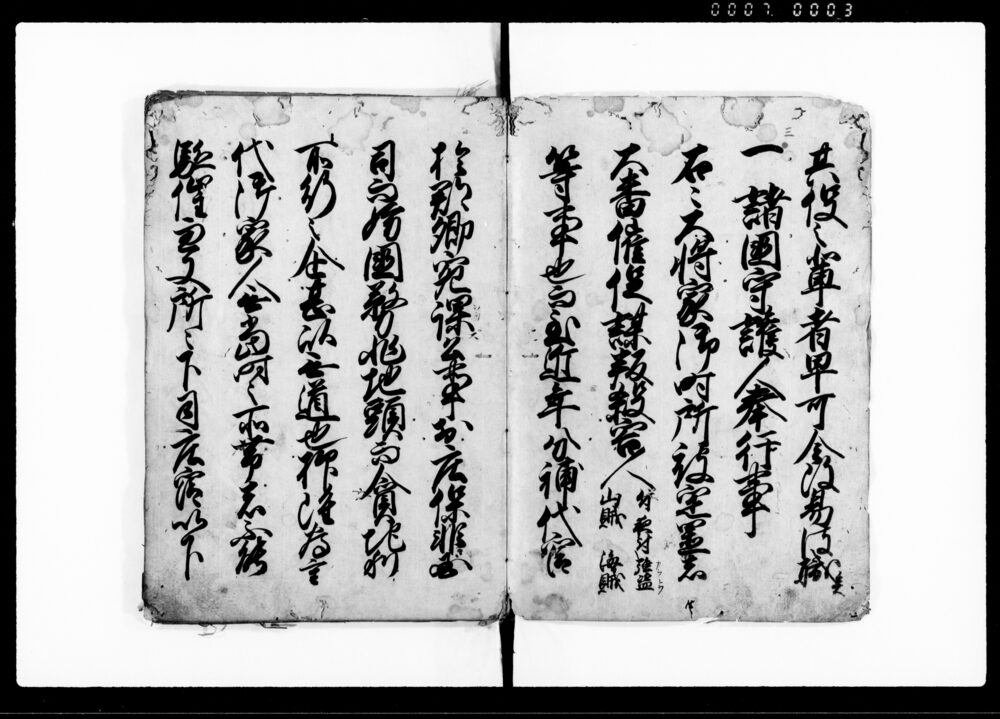 0007 0003
其役之輩者早可令改易彼職矣
三
一 諸国守護人奉行事
右々大将家御時所被定置者
大番催促謀叛殺害人付夜討強盗
山賊海賊
等事也而至近年分補代官
於郡郷宛課公事於庄保非国
司而妨国務非地頭而貪地利
所行之企甚以無道也抑雖為重
代御家人無当時之所帯者不能
駈催兼又所々下司庄官以下